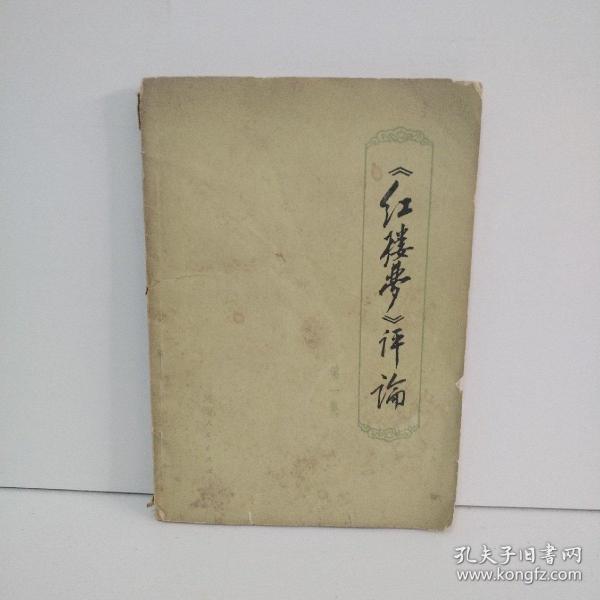 《红楼梦》评论
第一集
孔夫子旧书网
www.kongfz.com